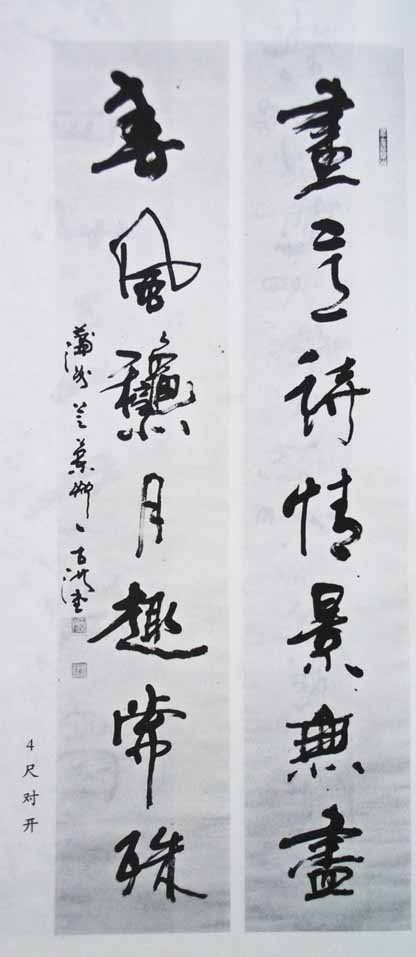 畫意詩情景無盡
春風龝月趣常殊
4尺对开